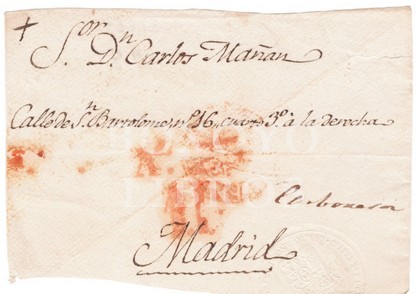 +
S.or D.n Carlos Mañan
Calle de S.n Bartolome, n.º 16, cuarto 3.º à la derecha
Madrid